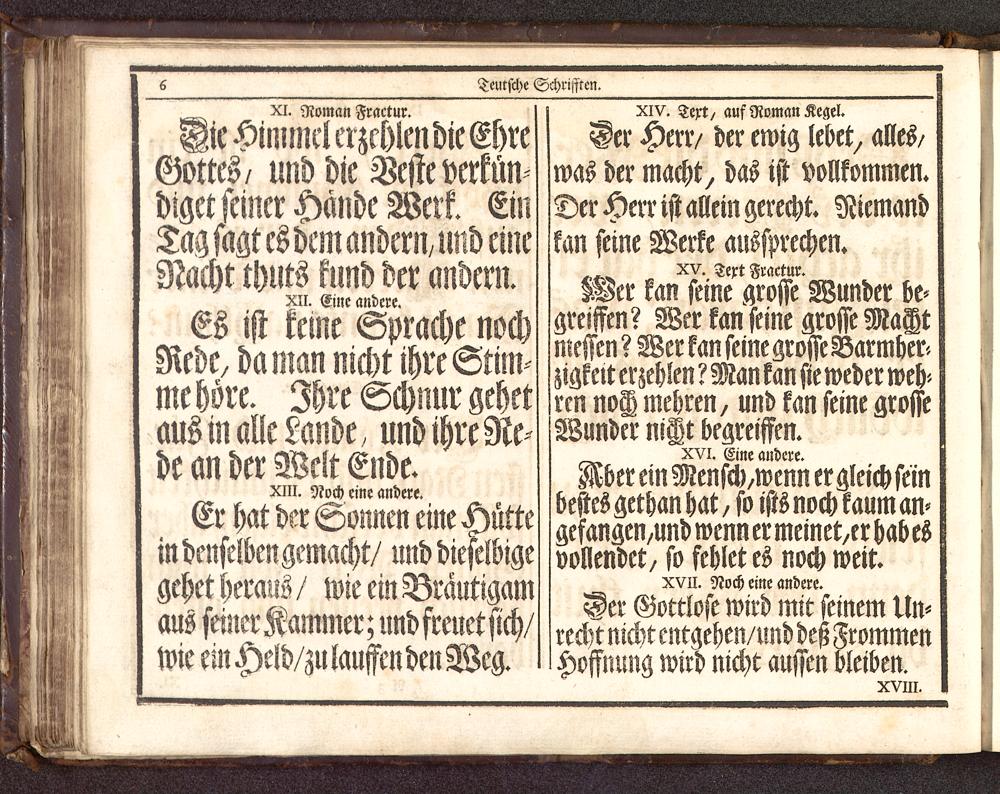 6
Teutsche Schrifften.
XI. Roman Fractur.
Die Himmel erzehlen die Ehre
Gottes, und die Veste verkün-
diget seiner Hände Werk. Ein
Tag sagt es dem andern, und eine
Nacht thuts kund der andern.
XII. Eine andere.
Es ist keine Sprache noch
Rede, da man nicht ihre Stim-
me höre. Ihre Schnur gehet
aus in alle Lande, und ihre Re-
de an der Welt Ende.
XIII. Noch eine andere.
Er hat der Sonnen eine Hütte
in denselben gemacht/ und dieselbige
gehet heraus/ wie ein Bräutigam
aus seiner Kammer; und freuet sich/
wie ein Held/zu lauffen den Weg.
XIV. Text, auf Roman Kegel.
Der Herr/ der ewig lebet, alles/
was der macht, das ist vollkommen.
Der Herr ist allein gerecht. Niemand
kan seine Werke aussprechen.
XV. Text Fractur.
Wer kan seine grosse Wunder be-
greiffen? Wer kan seine grosse Macht
messen? Wer kan seine grosse Barmher-
zigkeit erzehlen? Man kan sie weder weh-
ren noch mehren, und kan seine grosse
Wunder nicht begreiffen.
XVI. Eine andere.
Aber ein Mensch, wenn er gleich sein
bestes gethan hat, so ists noch kaum an-
gefangen, und wenn er meinet, er hab es
vollendet, so fehlet es noch weit.
XVII. Noch eine andere.
Der Gottlose wird mit seinem Un-
recht nicht entgehen/und deß Frommen
Hoffnung wird nicht aussen bleiben.
XVIII.